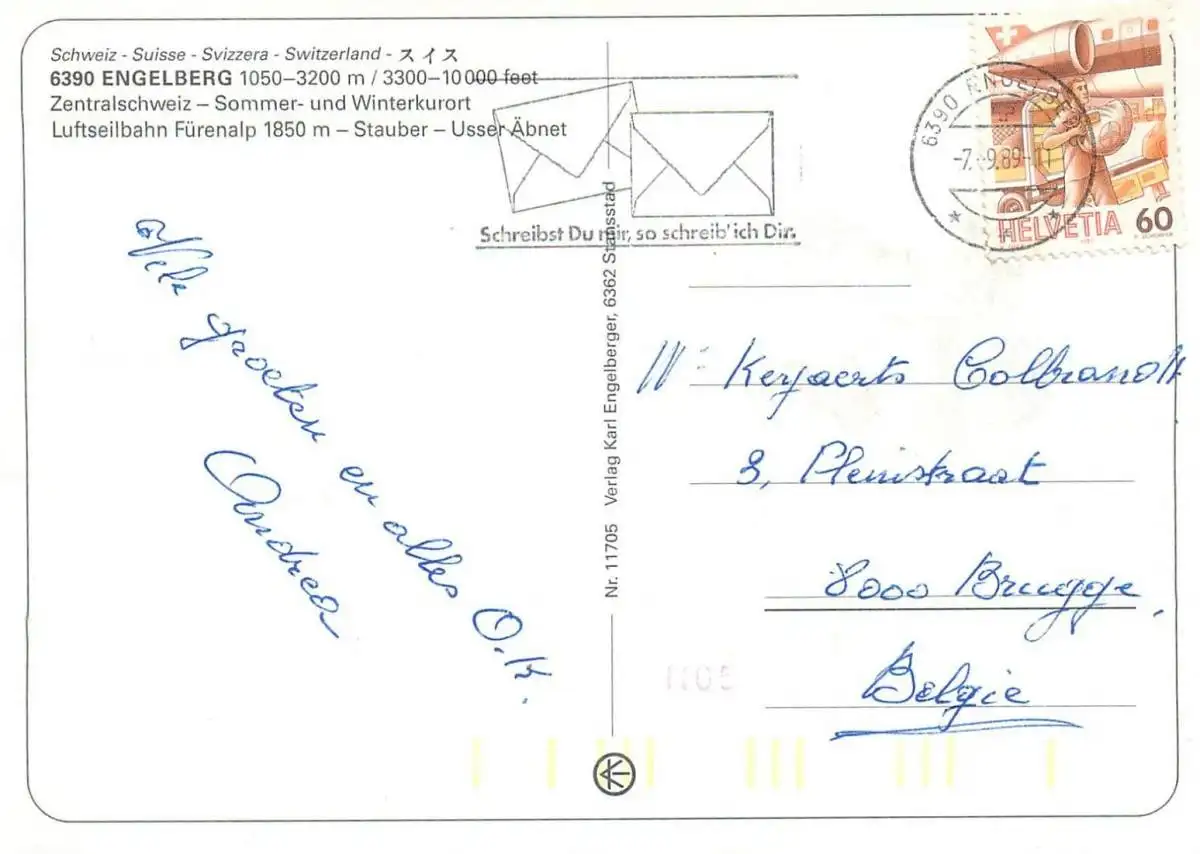 Schweiz - Suisse - Svizzera - Switzerland - スイス
6390 ENGELBERG 1050–3200 m / 3300–10 000 feet
Zentralschweiz – Sommer- und Winterkurort
Luftseilbahn Fürenalp 1850 m – Stauber – Usser Äbnet
Schreibst Du mir, so schreib' ich Dir.
6390 ENGELBERG
-7.-9.89-11
HELVETIA 60
Vele groeten en alles O.K.
Andrea
Nr. 11705 Verlag Karl Engelberger, 6362 Stansstad
Keyaerts Colbrandt
3, Pleinstraat
8000 Brugge,
België